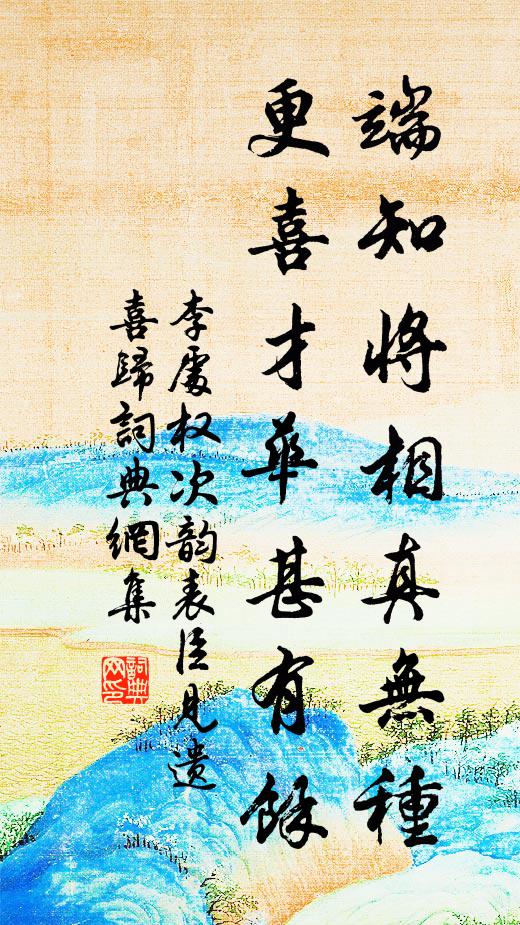 端知將相真無種
更喜才華甚有餘
李處权次韵表臣見遗
喜歸詞典網集
詞典网印